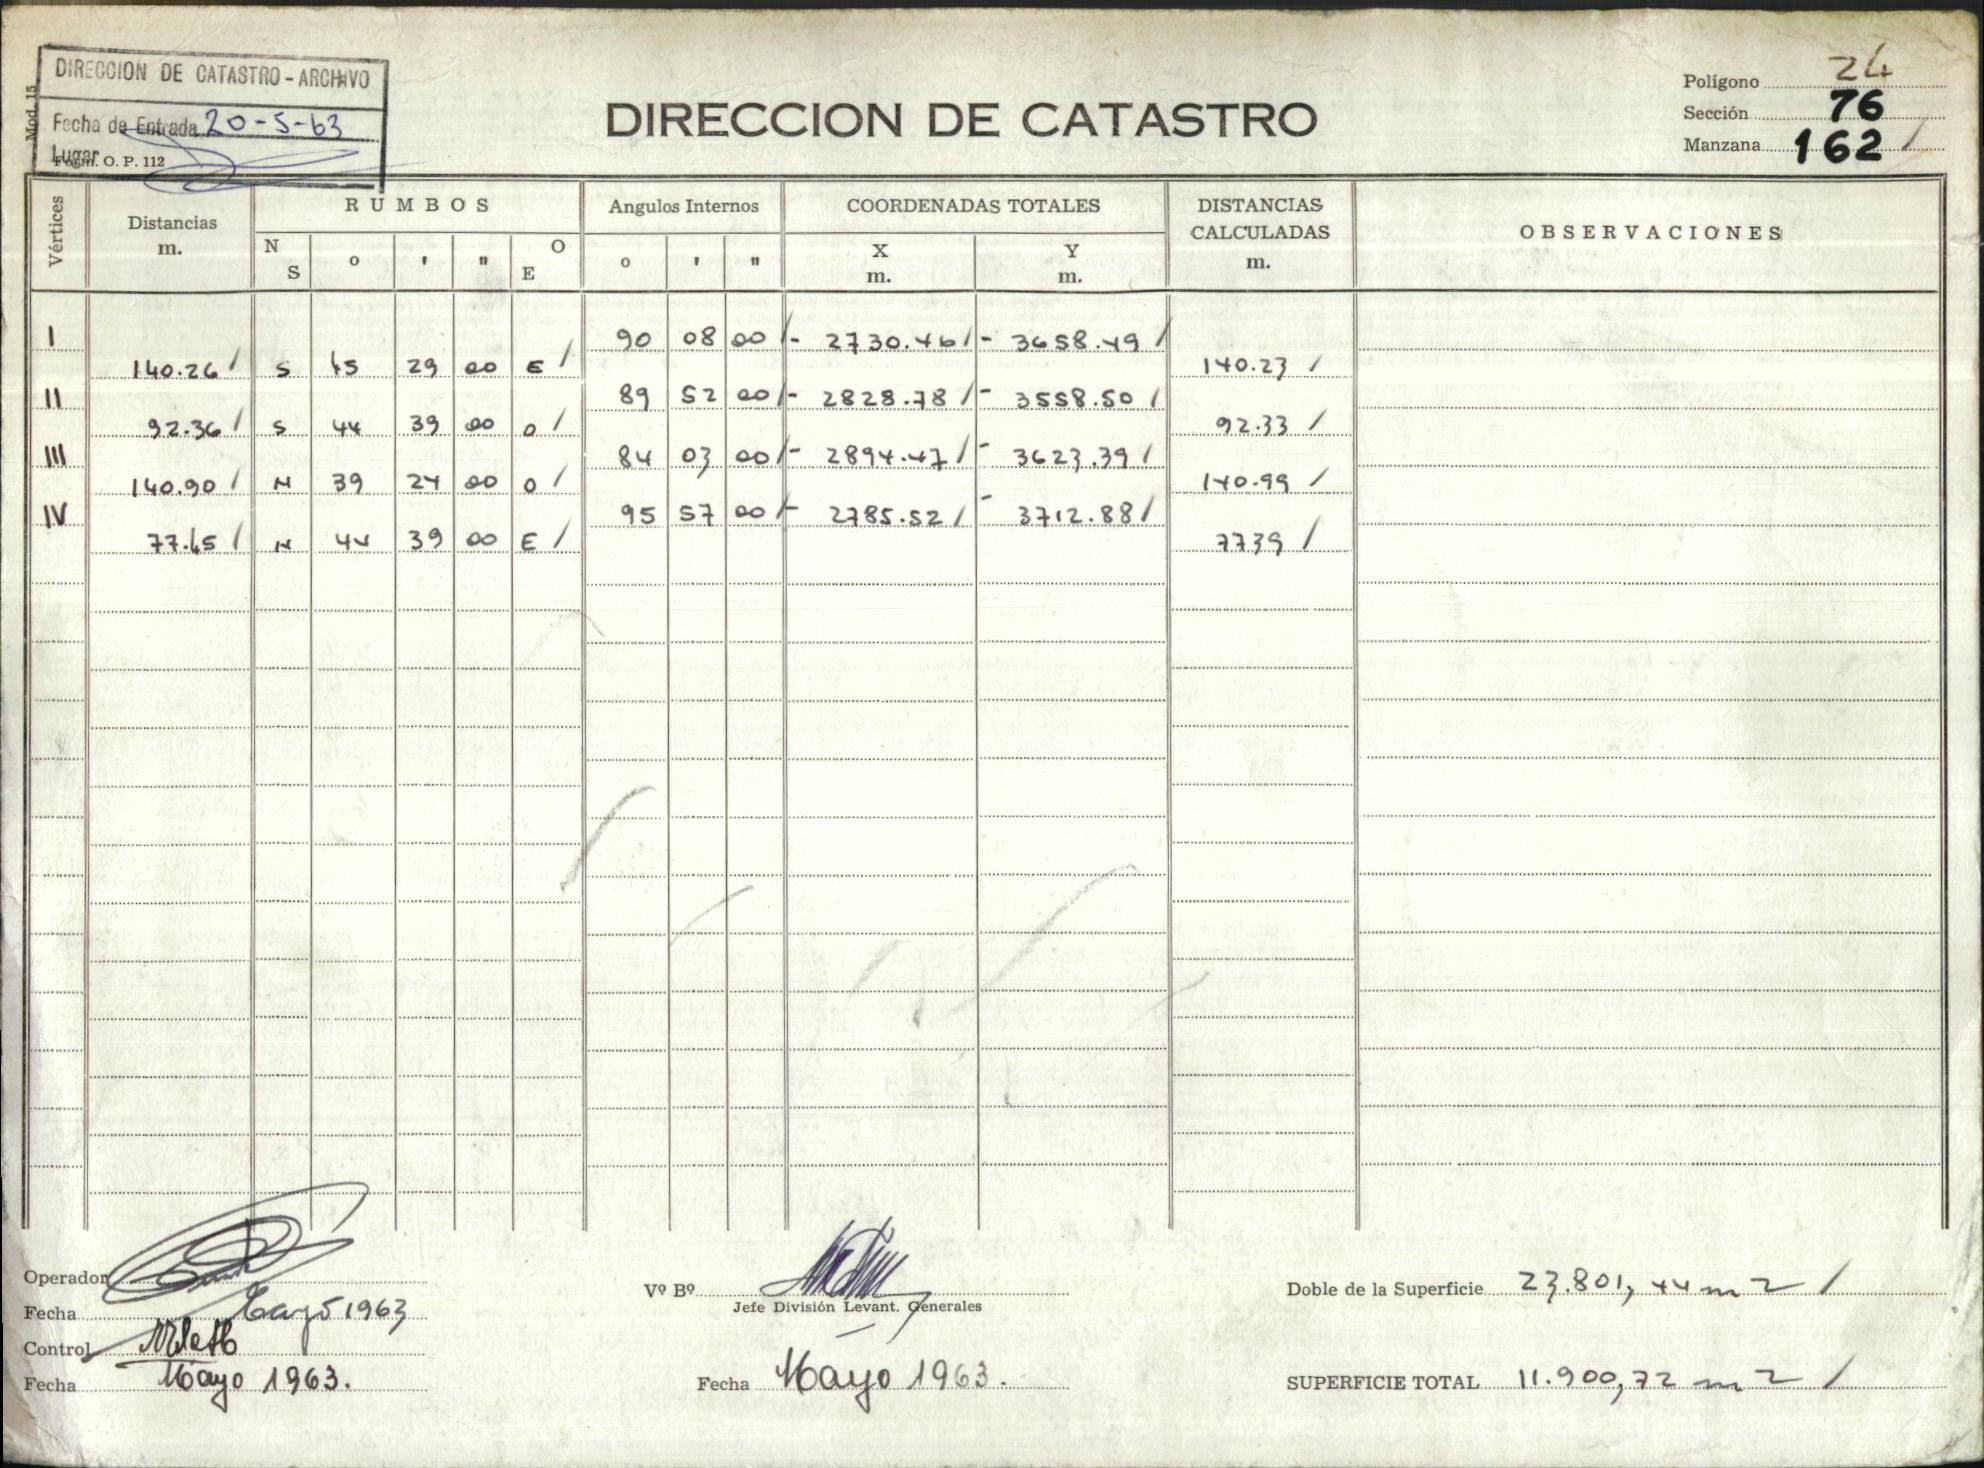 DIRECCION DE CATASTRO - ARCHIVO
Fecha de Entrada 20-5-63
Lugar
Mod. 15
Form. O. P. 112
DIRECCION DE CATASTRO
Polígono 24
Sección 76
Manzana 162 /
Vértices
Distancias
m.
RUMBOS
N
S
o ' "
O
E
Angulos Internos
o ' "
COORDENADAS TOTALES
X
m.
Y
m.
DISTANCIAS
CALCULADAS
m.
OBSERVACIONES
I 90 08 00 / - 2730.46 / - 3658.49 /
140.26 / S 45 29 00 E / 140.23 /
II 89 52 00 / - 2828.78 / - 3558.50 /
92.36 / S 44 39 00 O / 92.33 /
III 84 03 00 / - 2894.47 / - 3623.39 /
140.90 / N 39 24 00 O / 140.99 /
IV 95 57 00 / - 2785.52 / - 3712.88 /
77.45 / N 44 39 00 E / 7739 /
Operador
Fecha Mayo 1963
Control
Fecha Mayo 1963.
Vº Bº
Jefe División Levant. Generales
Fecha Mayo 1963.
Doble de la Superficie 23.801,44 m2 /
SUPERFICIE TOTAL 11.900,72 m2 /